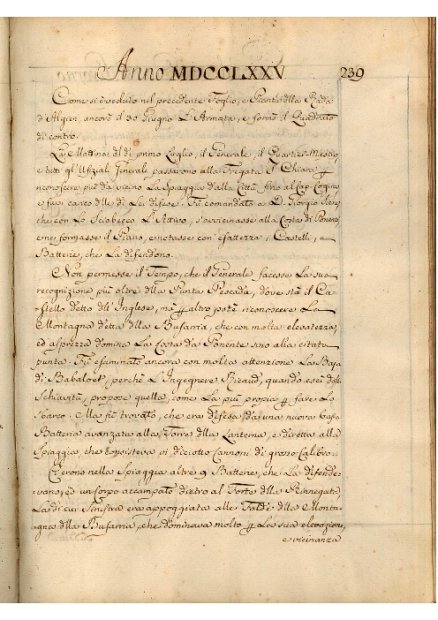 Anno MDCCLXXV
239
Come si è veduto nel precedente Foglio, e Pianta della Rada
d'Algeri ancorò il dì 30 Giugno L'Armata, e formò il Quadrato
di contro.
La Mattina del dì primo Luglio, il Generale, il Quartier Mastro
e tutti gl'Ufiziali Generali passarono alla Fregata S. Chiara
riconoscere più da vicino La Spiaggia dalla Città fino al Cap
e fare carico delle di Lei difese. Fù comandato a D. Giorgio
che con Lo Sciabecco L'Attivo, s'avvicinasse alla Costa di Ponente,
e ne formasse il Piano, e notasse con esattezza, i Castelli, e
Batterie, che La difendono.
Non permesse il Tempo, che il Generale facesse La sua
recognizione più oltre della Punta Pescada, dove stà il Ca-
stello detto dell'Inglese, mà per altro potè riconoscere La
Montagna detta della Bufarria, che con molta elevatezza,
ed asprezza domina La Costa da Ponente sino alla citata
punta. Fù esaminato ancora con molta attenzione La Baja
di Babaloet, perchè L'Ingegnere Rizaud, quando escì dalla
Schiavitù, propose quella, come La più propria per fare Lo
sbarco: Mà fù trovato, che era difesa da una nuova bassa
Batteria avanzata alla Torre della Lanterna, e diretta alla
Spiaggia, che esisteva vi diciotto Cannoni di grosso Calibro.
Erono nella Spiaggia altre 9 Batterie, che La difende-
vano, e un corpo accampato dietro al Forte della
La di cui Sinistra era appoggiata alle Falde della Monta-
gna della Bufarria, che dominava molto per Le sue elevazioni,
e vicinanza